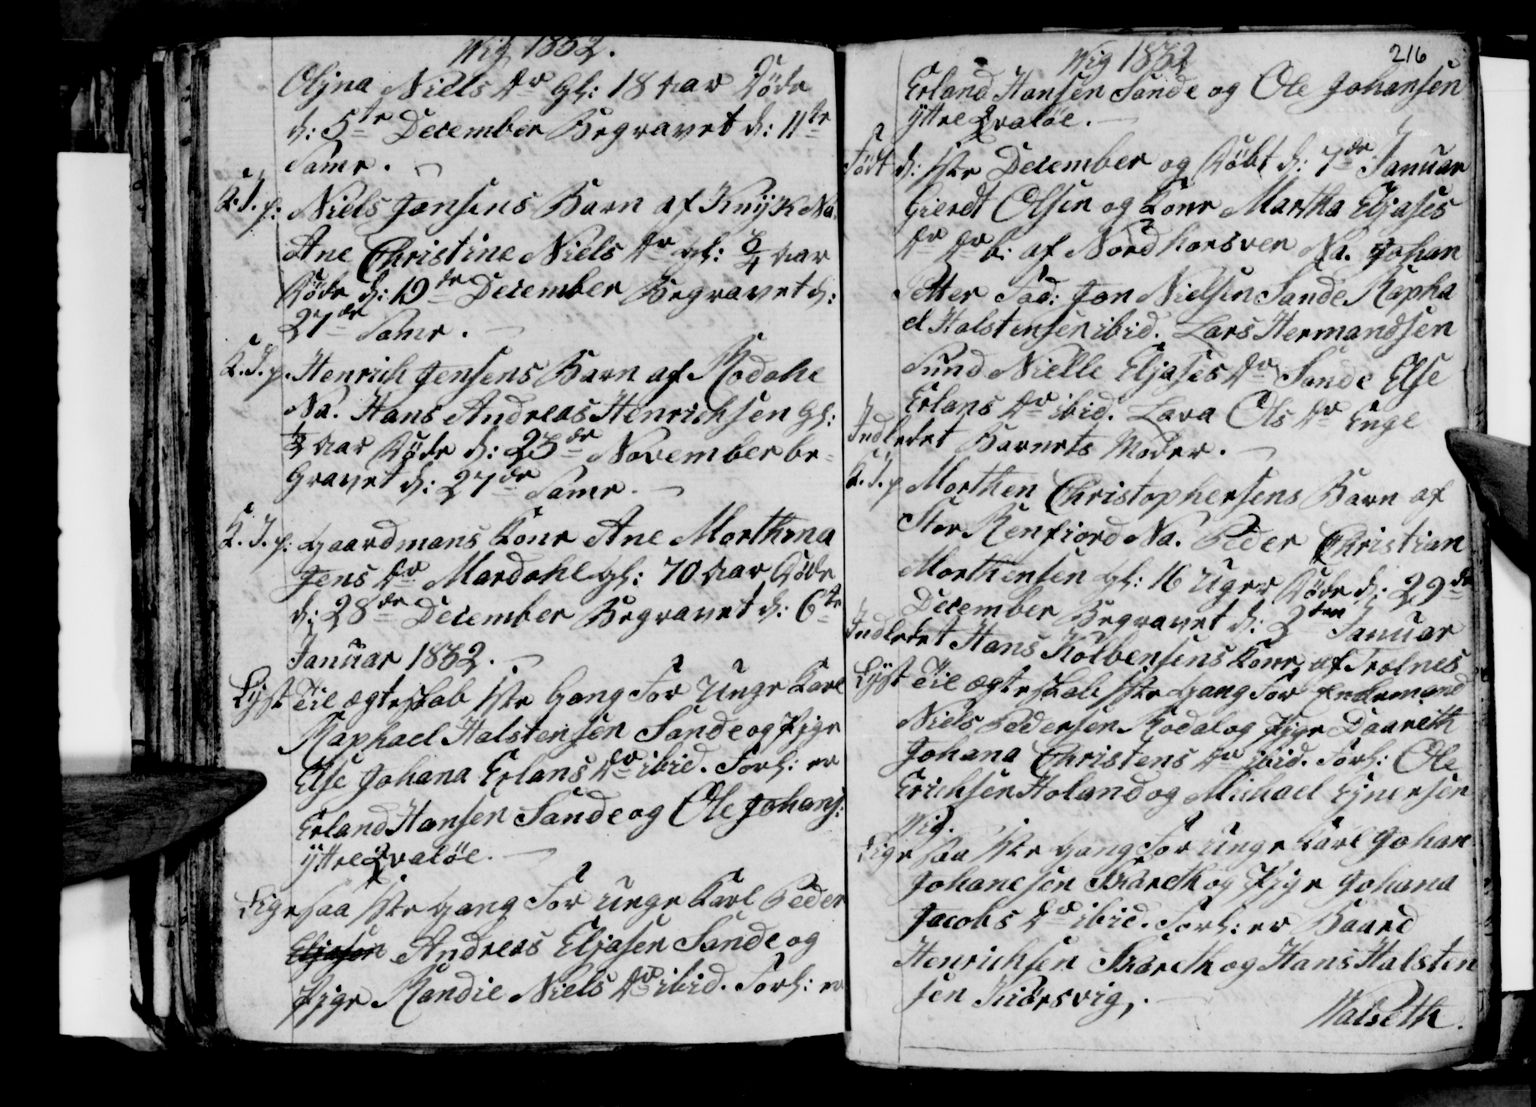 Wig 1832.
Oljna Niels Dr Gl: 18 aar Döde
d: 5te December Begravet d: 11te
Samr.
K. J. p: Niels Jensens Barn af Knÿk Na.
Ane Christine Niels Dr gl: aar
Döde d: 19de December Begravet d:
27de Samr.
K. J. p. Henrich Jensens Barn af
Na. Hans Andreas Henrichsen gl:
aar Döde d: 23de November be-
gravet d: 27de Samr.
K. J. p: Gaardmans Konr Ane Morthina
Jens Dr Mardahl gl: 70 aar Döde
d: 28de December Begravet d: 6te
Januar 1832.
Lÿst Til ægteskab 1ste Gang for Unge Karl
Raphael Halstensen Sande og Pige
Else Johana Erlans Dr ibid. Forl: er
Erland Hansen Sande og Ole Johans:
ÿttre Qvalöe.
Ligesaa 1ste Gang for unge Karl Peder
Eljasen Andreas Eljasen Sande og
Pige Randie Niels Dr ibid. Forl: er
216
Wig 1832
Erland Hansen Sande og Ole Johansen
ÿttre Qvalöe.
Född d: 1ste December og Döbt d: 7de Januar
Gierdt Olsen og Konr Martha Eljases
Dr Dr b: af Nordhorsven Na. Johan
Petter Fad: Jon Nielsen Sande Rapha
el Halstensen ibid. Lars Hermandsen
Sund Nielle Eljases Dr Sande Else
Erlans Dr ibid. Lava Ols Dr Enge
Indledet Barnets Moder.
K. J. p Morthen Christophersens Barn af
Stor Renfiord Na. Peder Christian
Morthensen gl: 16 Uger Döde d: 29de
December Begravet d: 2den Januar
Indledet Hans Kolbensens Konr af Trolnes
Lÿst Til ægteskab 1ste Gang for Enkemand
Niels Pedersen Rodal og Pige Daareth
Johana Christens Dr ibid. Forl: Ole
Erichsen Holand og Michael Ejnersen
Wig.
Ligesaa 1ste Gang for Unge Karl Johan
Johanesen Skareth og Pige Johana
Jacobs Dr ibid. Forl: er Baard
Henrichsen Skareth og Hans Halsten
sen Kiörsvig.
Walseth.